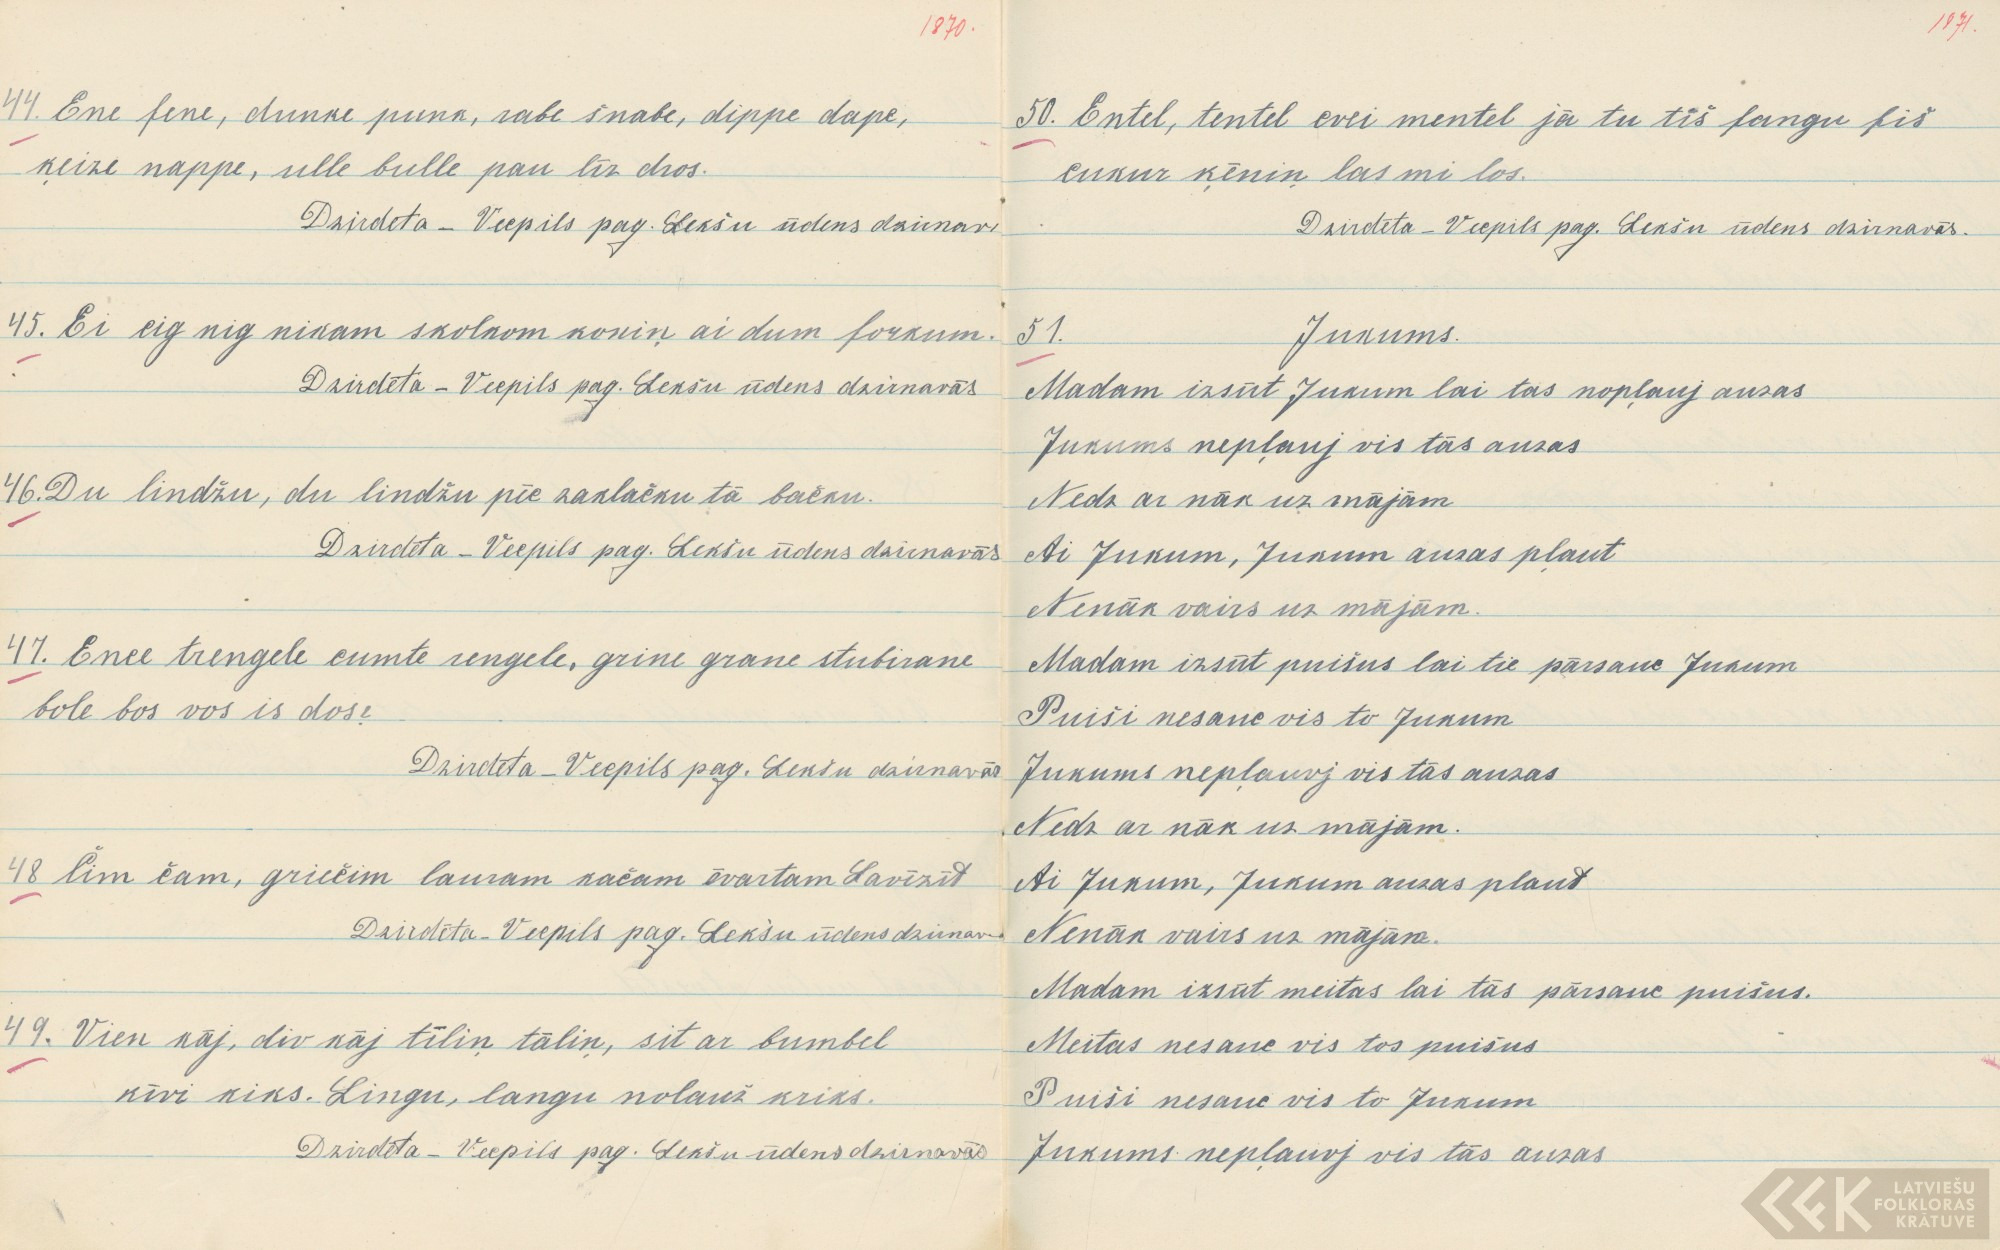 1870.
44. Ene fene, dunke punk, rabe šnabe, dippe dape,
ķeize nappe, ulle bulle pau līz dros.
Dzirdēta – Vecpils pag. Lekšu ūdens dzirnav
45. Ei eig nig nikam skolkom kokiņ ai dum forkum.
Dzirdēta – Vecpils pag. Lekšu ūdens dzirnavās
46. Du lindžu, du lindžu pīc zaklačku tā bačku.
Dzirdēta – Vecpils pag. Lekšu ūdens dzirnavās
47. Ence trengele cumte rengele, grine grane stubirane
bole bos vos is dos?
Dzirdēta – Vecpils pag. Lekšu dzirnavās
48 Čim čam, griečim lauzam kačam ēvartam Lavīzīt
Dzirdēta – Vecpils pag. Lekšu ūdens dzirnav
49. Vien kāj, div kāj tīliņ tāliņ, sit ar bumbel
kīvi kiks. Lingu, langu nolauž kriks.
Dzirdēta – Vecpils pag. Lekšu ūdens dzirnavās
1871.
50. Entel, tentel cvei mentel jā tu tīš fangu fiš
cukur ķēniņ las mi los.
Dzirdēta – Vecpils pag. Lekšu ūdens dzirnavās.
51. Jukums.
Madam izsūt Jukum lai tas nopļauj auzas
Jukums nepļauj vis tās auzas
Nedz ar nāk uz mājām
Ai Jukum, Jukum auzas pļaut
Nenāk vairs uz mājām.
Madam izsūt puišus lai tie pārsauc Jukum
Puiši nesauc vis to Jukum
Jukums nepļauj vis tās auzas
Nedz ar nāk uz mājām.
Ai Jukum, Jukum auzas plaut
Nenāk vairs uz mājām.
Madam izsūt meitas lai tās pārsauc puišus.
Meitas nesauc vis tos puišus
Puiši nesauc vis to Jukum
Jukums nepļauj vis tās auzas
LATVIEŠU
FOLKLORAS
KRĀTUVE